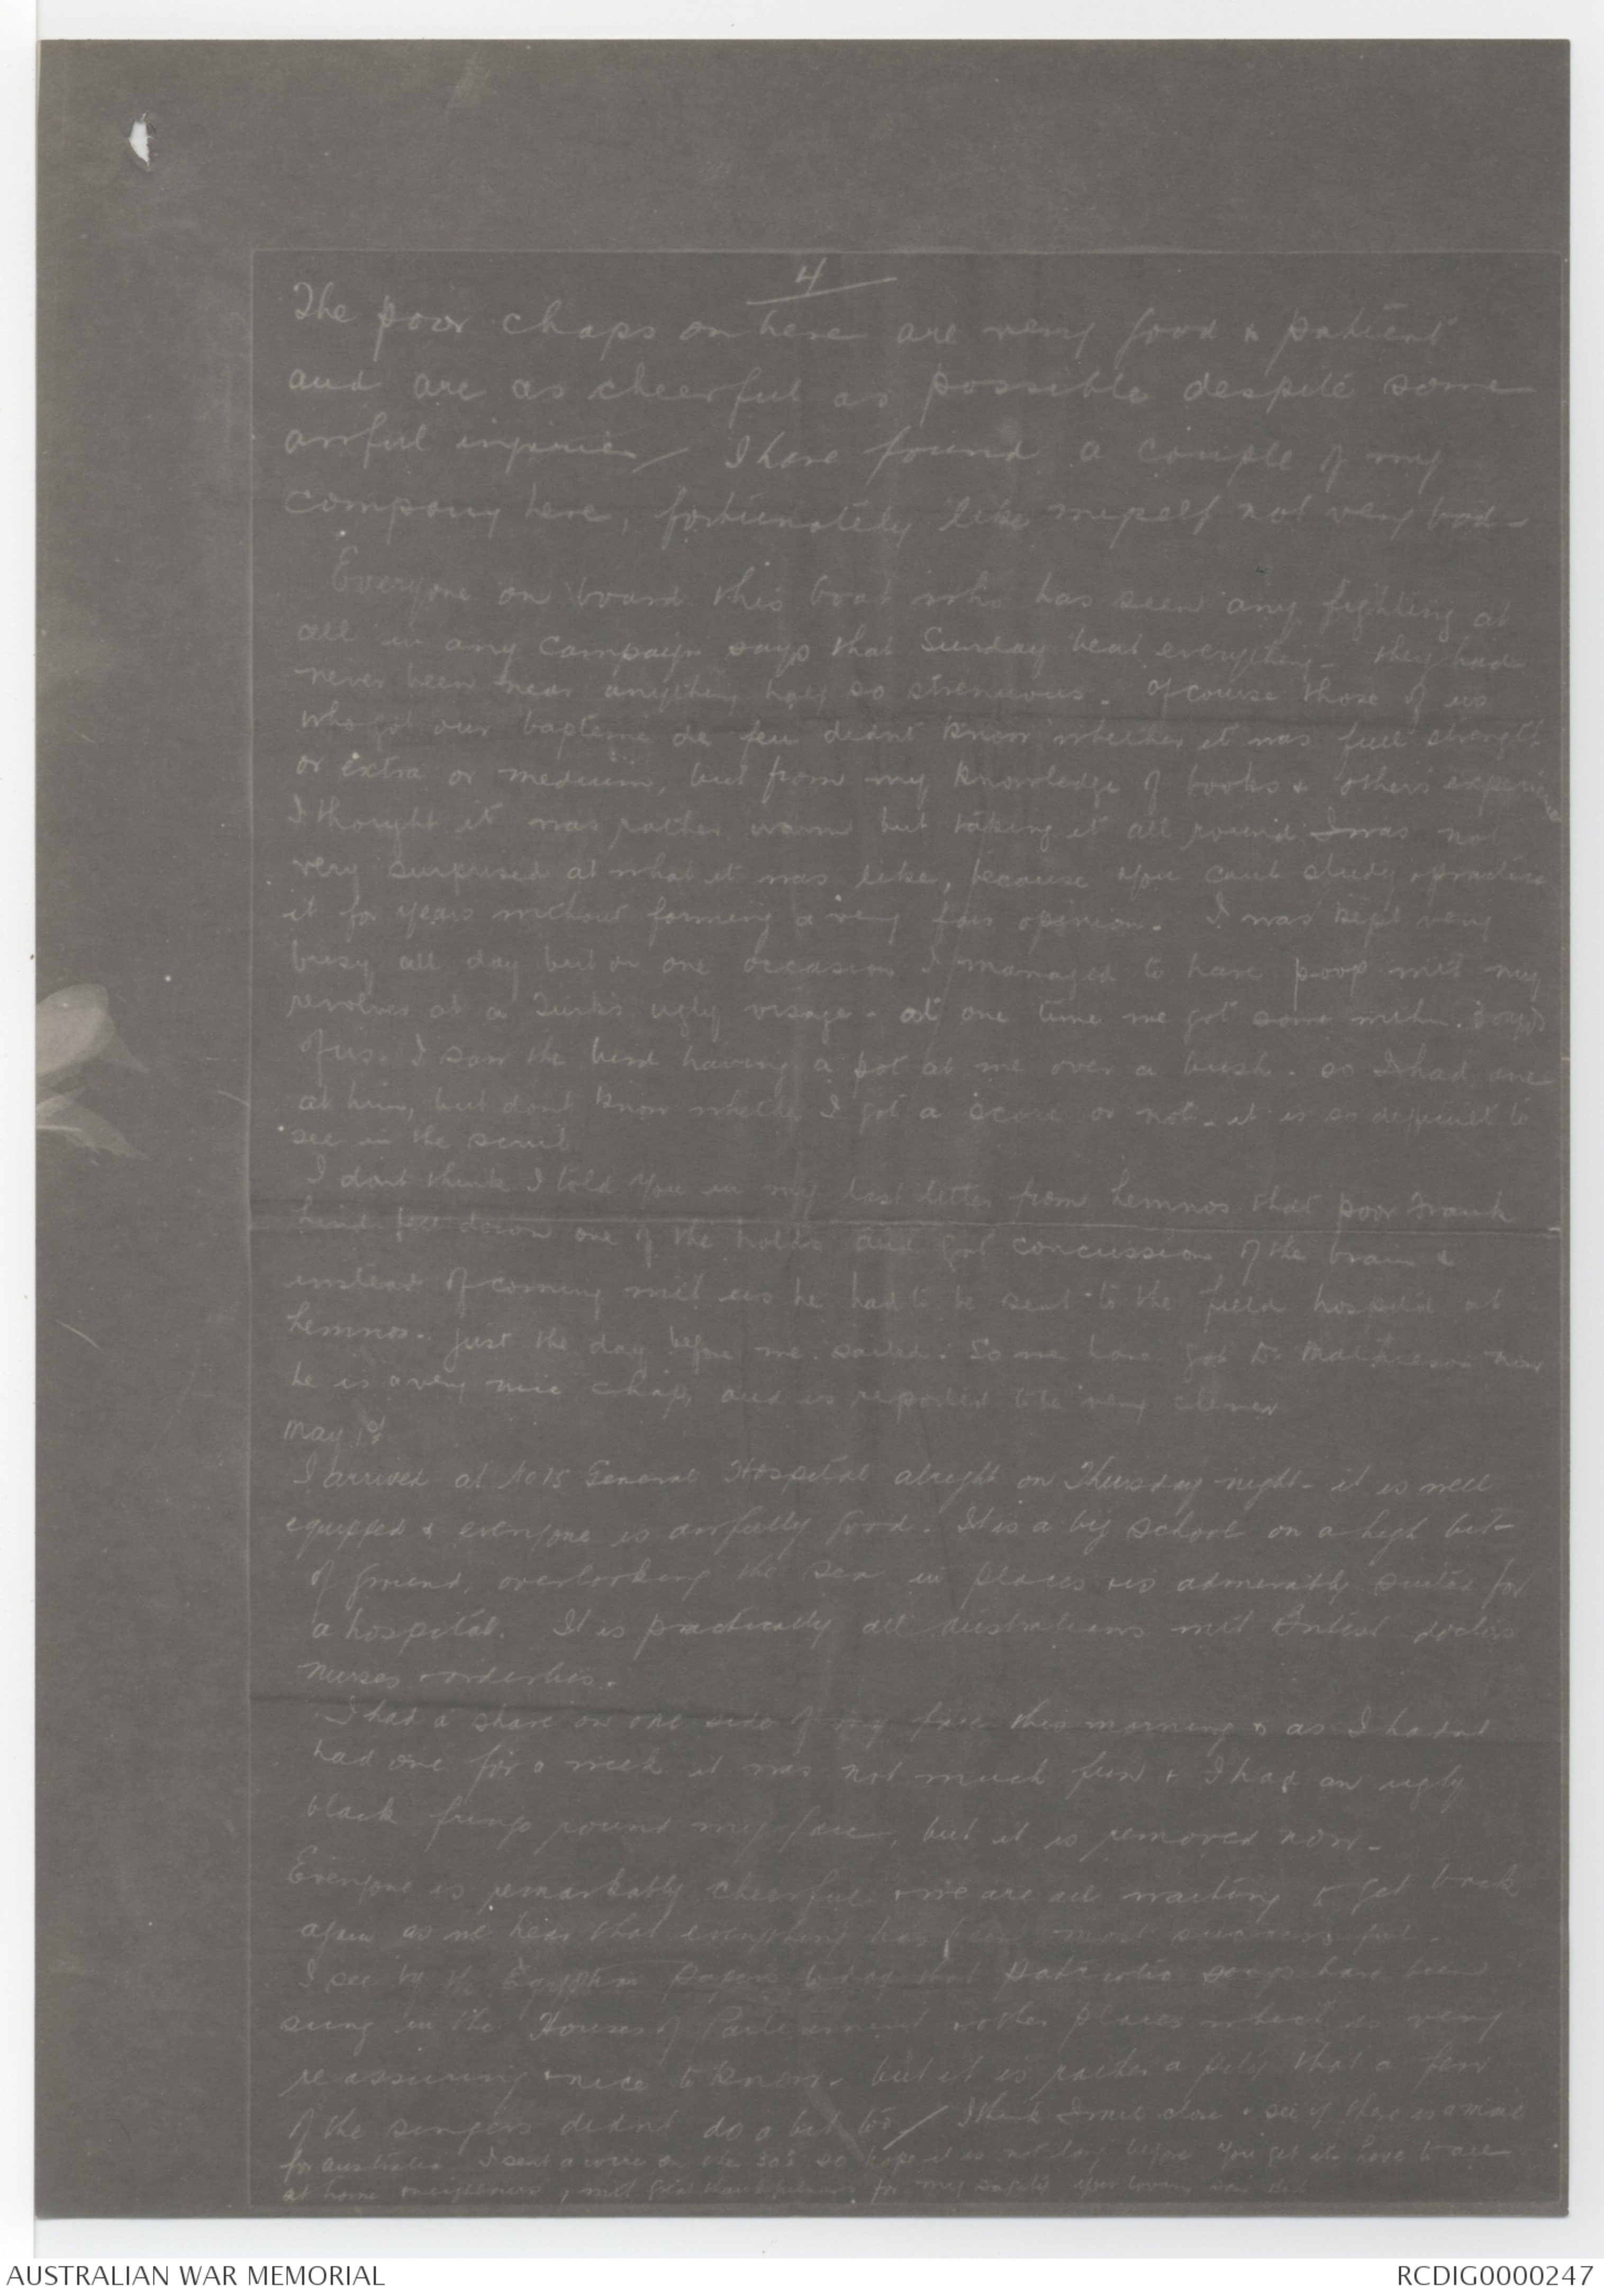 4
The poor chaps on here are very good & patient
and are as cheerful as possible despite some
awful injuries / I have found a couple of my
company here, fortunately like myself not very bad -
Everyone on board this boat who has seen any fighting at
all in any campaign says that Sunday beat everything - they had
never been near anything half so strenuous. Of course those of us
who got our bapteme de feu didnt know whether it was full strength
or extra or medium, but from my knowledge of books & others experience
I thought it was rather warm but taking it all round I was not
very surprised at what it was like, because you cant study & practice
it for years without forming a very fair opinion. I was kept very
busy all day but on one occasion I managed to have poop with my
revolver at a Turk's ugly visage - at one time we got some within
of us. I saw the having a pot at me over a bush - so I had one
at him, but dont know whether I got a score or not - it is so difficult to
see in the scrub.
I dont think I told you in my last letter from Lemnos that poor Frank
fell down one of the holds and got concussion of the brain &
instead of coming with us he had to be sent to the field hospital at
Lemnos - just the day before we sailed. So we have got Dr Mathieson now
he is a very nice chap, and is reported to be very clever
May 1st
I arrived at No 15 General Hospital alright on Thursday night - it is well
equipped & everyone is awfully good. It is a big school on a high bit
of ground, overlooking the sea in places & is admirably suited for
a hospital. It is practically all Australians with British doctors
nurses & orderlies.
I had a shave on one side of my face this morning & as I hadnt
had one for a week it was not much fun & I had an ugly
black fringe round my face, but it is removed now -
Everyone is remarkably cheerful & we are all waiting to get back
again as we hear that everything has been most successful.
I see by the Egyptian papers today that patriotic songs have been
sung in the Houses of Parliament & other places which is very
reassuring & nice to know - but it is rather a pity that a few
of the singers didnt do a bit too / I think I will close & see if there is a mail
for Australia. I sent a wire on the 30th so hope it is not long before you get it. Love to all
at home & neighbours, with great thankfulness for my safety your loving son
AUSTRALIAN WAR MEMORIAL
RCDIG0000247